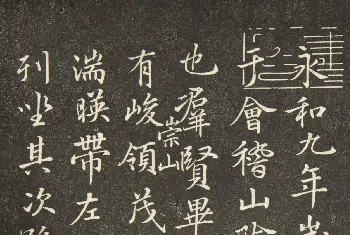 永和九年
于會稽山
也羣賢畢
有崇山峻領茂
湍暎帶左
列坐其次